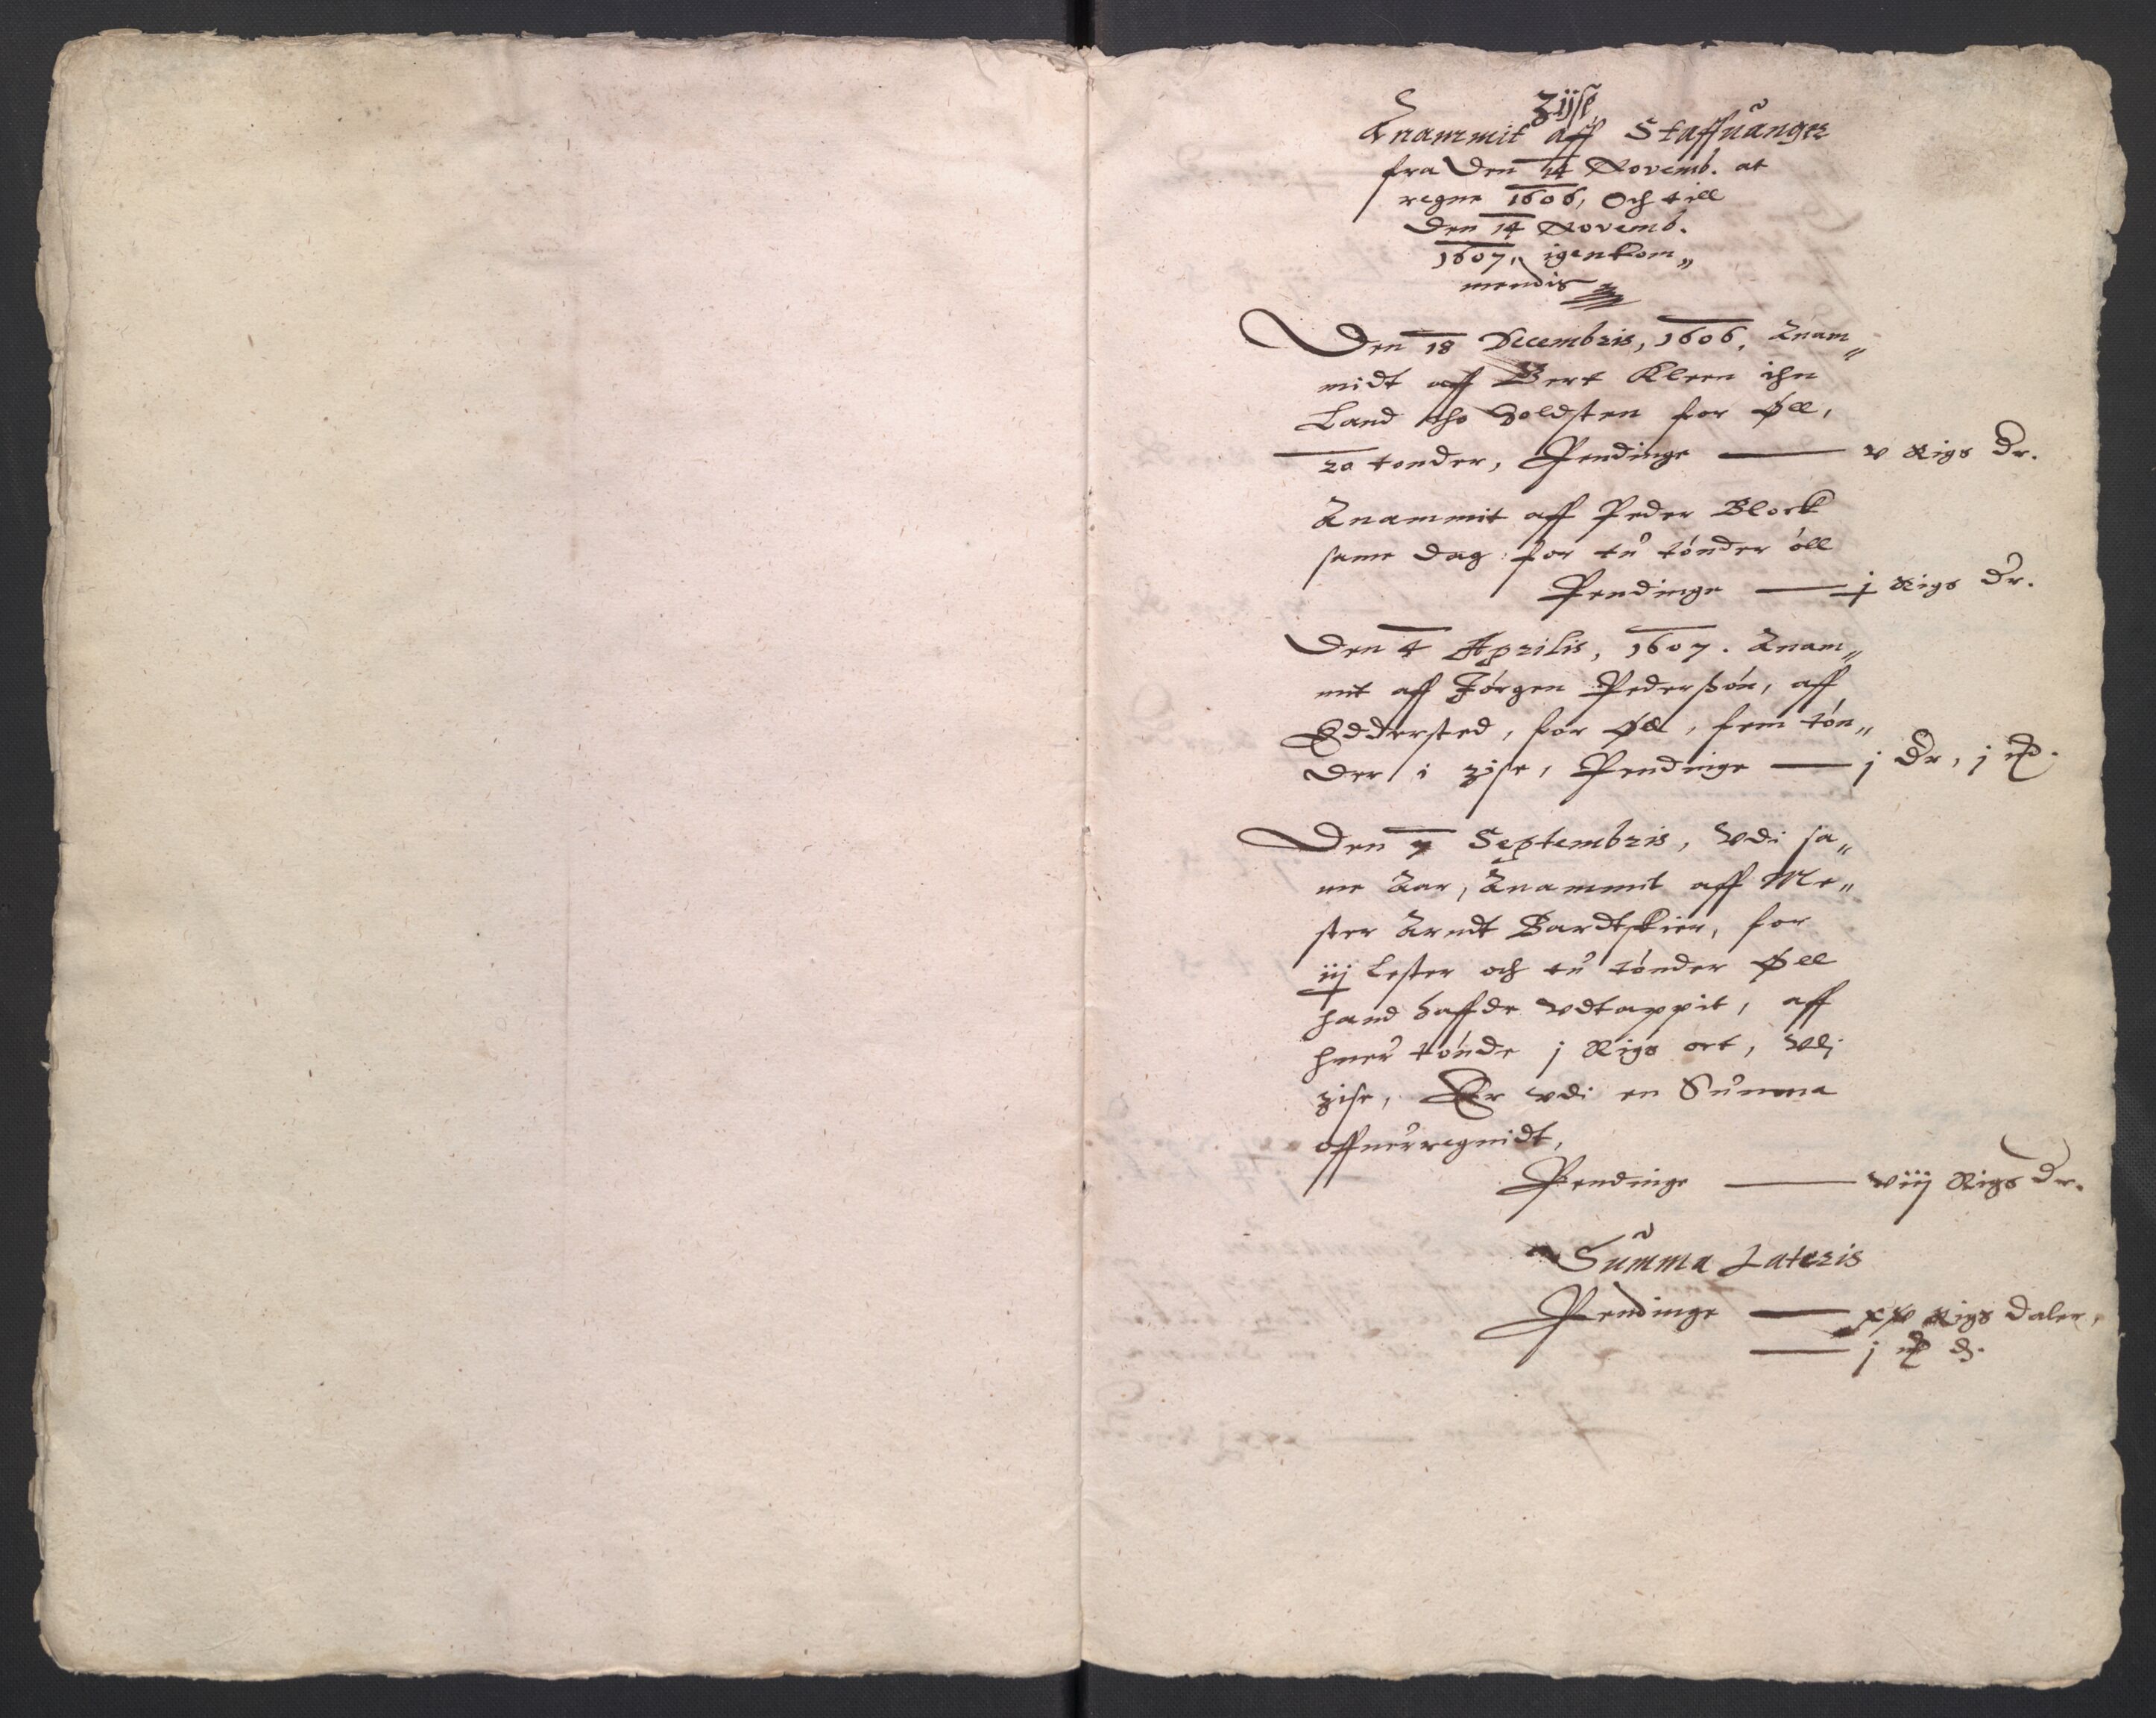 Zijse
Anammit aff Staffuanger
fra den 14 Novemb. at
regne 1606, Och till
den 14 Novemb.
1607, igenkom„
mendis
Den 18 Decembris, 1606, Anam„
midt aff Bert Kleen ihn
Land tho Holdsten for Øll,
20 tønder, Pendinge — v Rigs dr.
Anammit aff Peder Block
same dag for tu tónder óll
Pendinge — j Rigs dr.
Den 4 Aprilis, 1607. Anam„
mit aff Jórgen Pederßón, aff
Eddersted, for Øll, fem tón„
der i zise, Pendinge — j dr, j
Den 7 Septembris, Vdi sa„
me Aar, Anammit aff Me„
ster Arndt Bardtskier, for
iij Lester och tu tónder Øll
hand haffde vdtappit, aff
huer tónde j Rigs ort, Vdj
zise, Er vdi en Summa
offuerregnidt,
Pendinge — viij Rigs dr.
Summa Lateris
Pendinge — xv Rigs daler,
— j